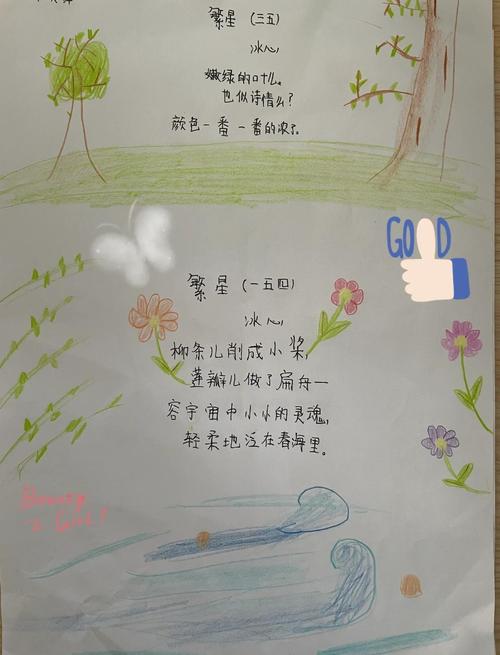 繁星（三五）
冰心
嫩绿的叶儿。
也似诗情么？
颜色一番一番的浓了。
GOOD
繁星（一五四）
冰心
柳条儿削成小桨，
莲瓣儿做了扁舟一
容宇宙中小小的灵魂，
轻柔地泛在春海里。